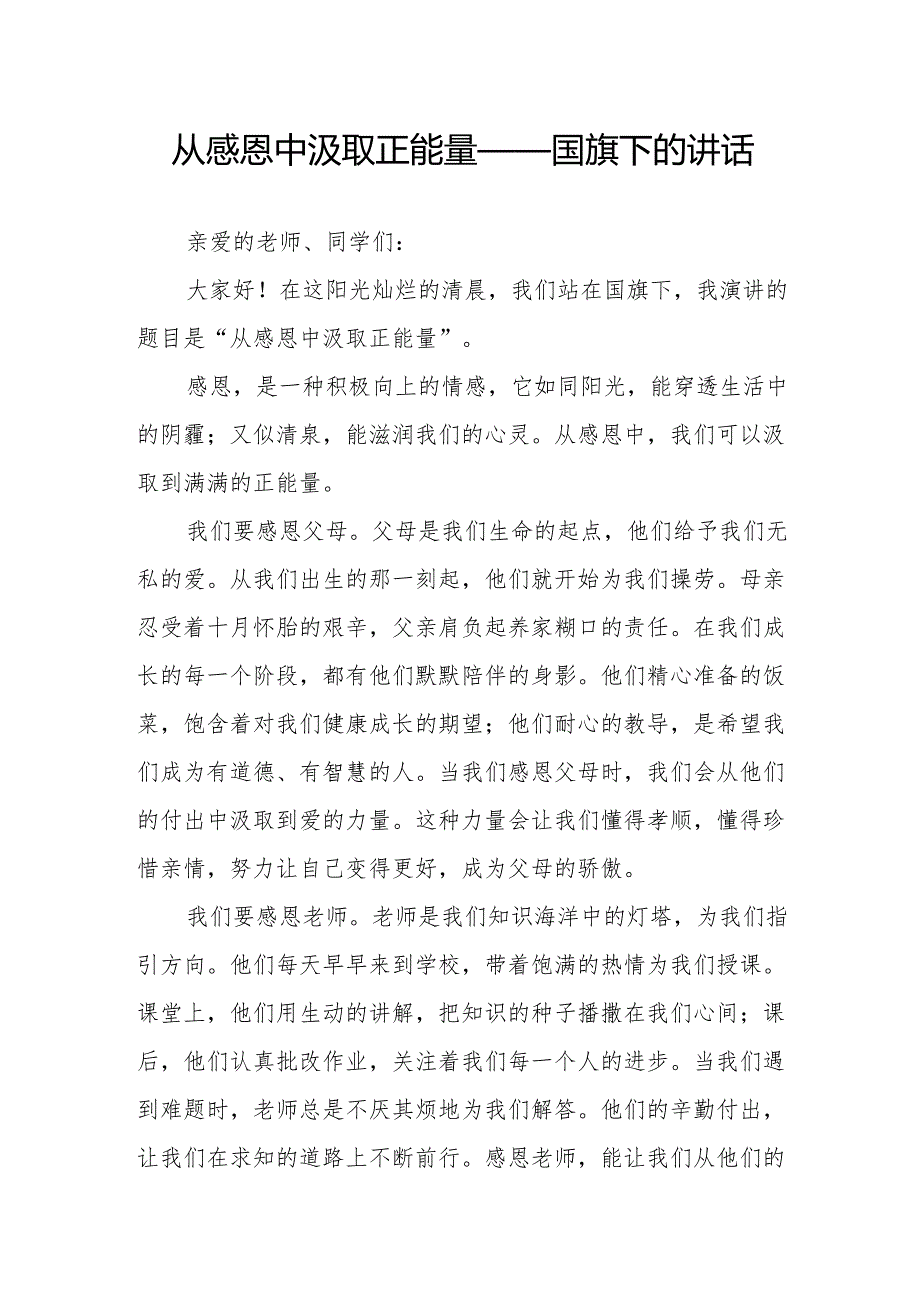 从感恩中汲取正能量——国旗下的讲话
亲爱的老师、同学们：
大家好！在这阳光灿烂的清晨，我们站在国旗下，我演讲的
题目是“从感恩中汲取正能量”。
感恩，是一种积极向上的情感，它如同阳光，能穿透生活中
的阴霾；又似清泉，能滋润我们的心灵。从感恩中，我们可以汲
取到满满的正能量。
我们要感恩父母。父母是我们生命的起点，他们给予我们无
私的爱。从我们出生的那一刻起，他们就开始为我们操劳。母亲
忍受着十月怀胎的艰辛，父亲肩负起养家糊口的责任。在我们成
长的每一个阶段，都有他们默默陪伴的身影。他们精心准备的饭
菜，饱含着对我们健康成长的期望；他们耐心的教导，是希望我
们成为有道德、有智慧的人。当我们感恩父母时，我们会从他们
的付出中汲取到爱的力量。这种力量会让我们懂得孝顺，懂得珍
惜亲情，努力让自己变得更好，成为父母的骄傲。
我们要感恩老师。老师是我们知识海洋中的灯塔，为我们指
引方向。他们每天早早来到学校，带着饱满的热情为我们授课。
课堂上，他们用生动的讲解，把知识的种子播撒在我们心间；课
后，他们认真批改作业，关注着我们每一个人的进步。当我们遇
到难题时，老师总是不厌其烦地为我们解答。他们的辛勤付出，
让我们在求知的道路上不断前行。感恩老师，能让我们从他们的